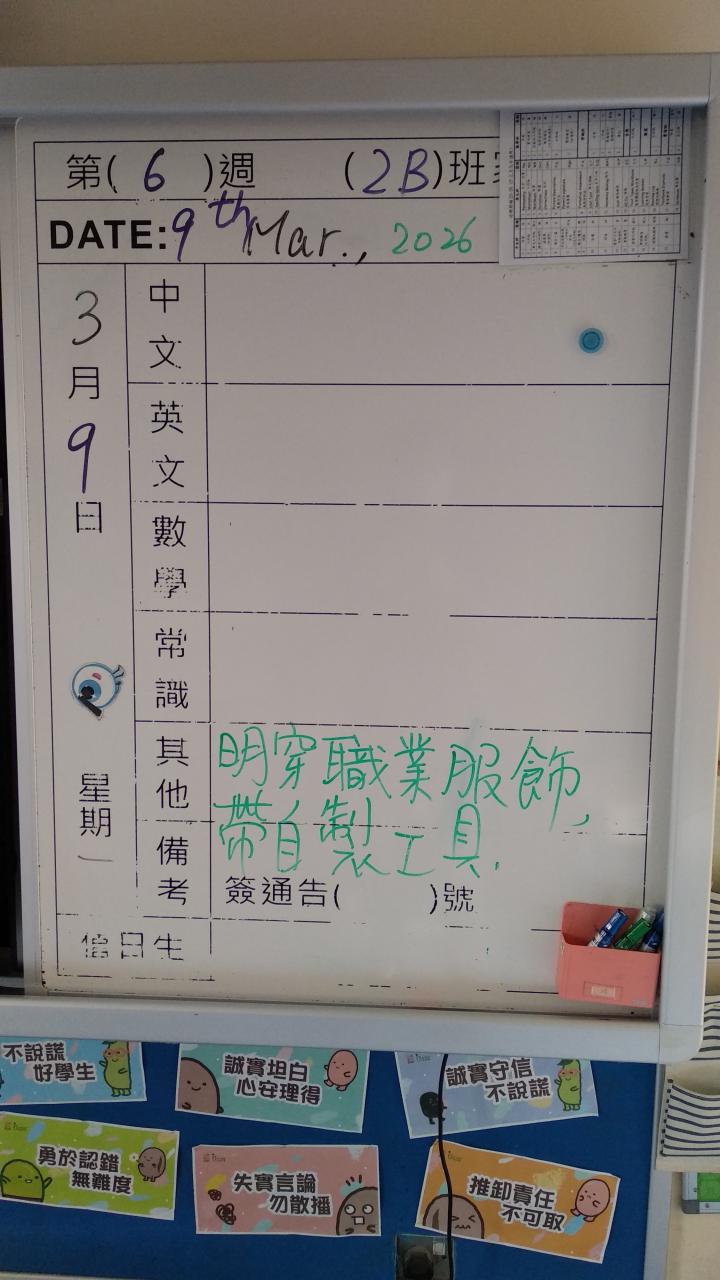 第( 6 )週 (2B)班
DATE: 9th Mar., 2026
3月9日
星期一
中文
英文
數學
常識
其他
明穿職業服飾,
帶自製工具.
備考
簽通告( )號
值日生
不說謊
好學生
誠實坦白
心安理得
誠實守信
不說謊
勇於認錯
無難度
失實言論
勿散播
推卸責任
不可取